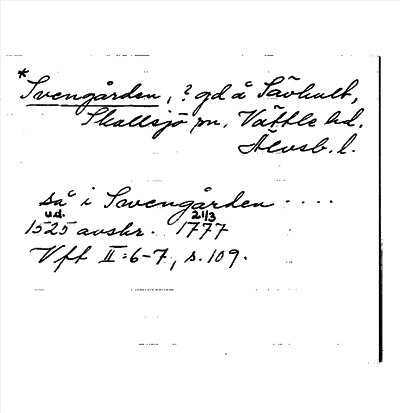 * Svengården, ? gd å Sävhult,
Skallsjö sn. Vättle hd.
Älvsb. l.
så i Swengården ....
u.d. 21/3
1525 avskr. 1777
Vft II:6-7, s. 109.